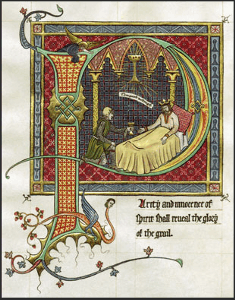 Purity and innocence of
Spirit shall reveal the glory
of the grail.